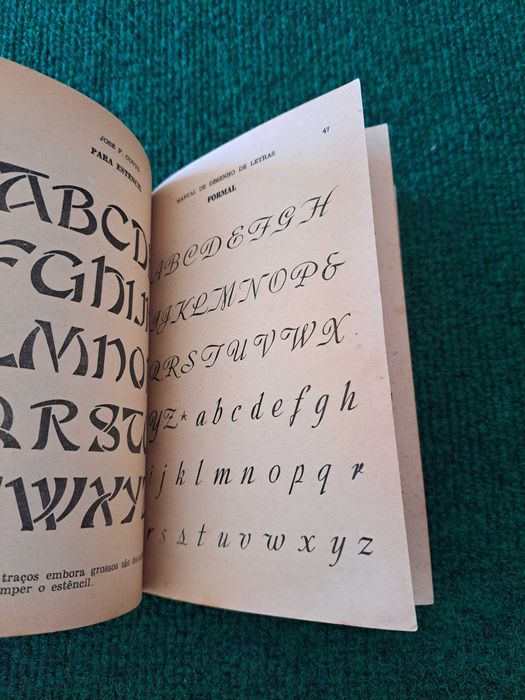 JOSÉ F. COUTO
PARA ESTÊNCIL
ABCD
FGHIJ
LMNO
QRSTU
WXYZ
traços embora grossos são
mper o estêncil.
MANUAL DE DESENHO DE LETRAS 47
FORMAL
ABCDEFGH
IJKLMNOP&
QRSTUVWX
YZ*abcdefgh
ijklmnopqr
rsstuvwxyz